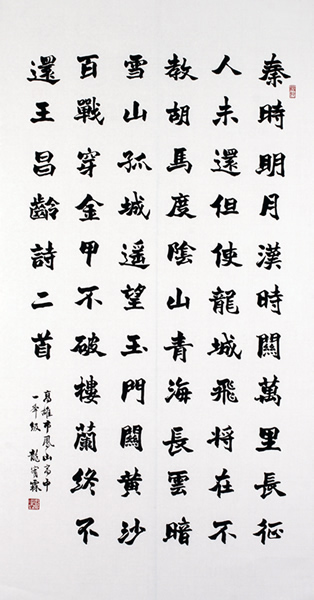 秦時明月漢時關萬里長征
人未還但使龍城飛將在不
教胡馬度陰山青海長雲暗
雪山孤城遙望玉門關黃沙
百戰穿金甲不破樓蘭終不
還王昌齡詩二首
高雄市鳳山高中
一年級 龍
霖